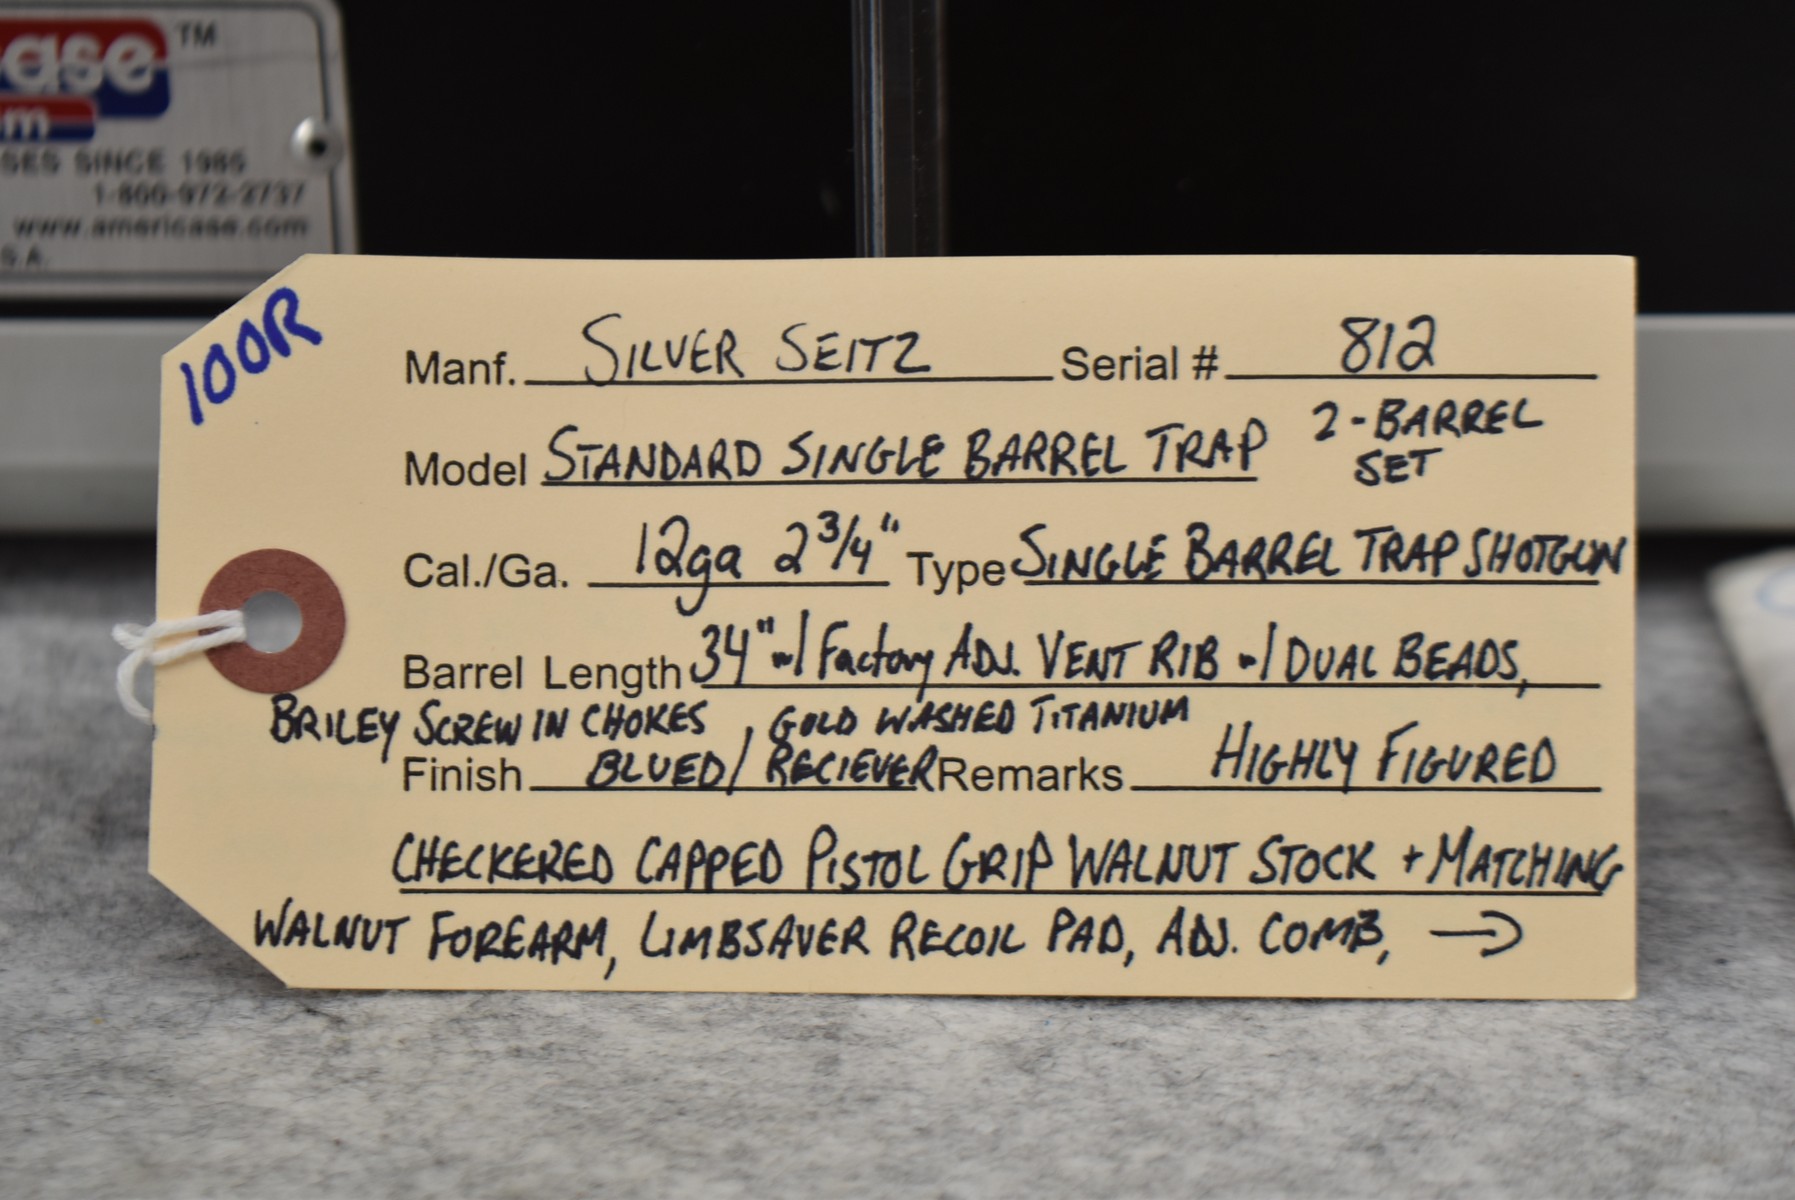 ase™
m
SES SINCE 1985
1-800-972-2737
www.americase.com
S.A.
100R
Manf. SILVER SEITZ Serial # 812
Model STANDARD SINGLE BARREL TRAP 2-BARREL
SET
Cal./Ga. 12ga 2 3/4" Type SINGLE BARREL TRAP SHOTGUN
Barrel Length 34" w/ Factory ADJ. VENT RIB w/ DUAL BEADS,
BRILEY SCREW IN CHOKES, GOLD WASHED TITANIUM
Finish BLUED/ RECIEVER Remarks HIGHLY FIGURED
CHECKERED CAPPED PISTOL GRIP WALNUT STOCK + MATCHING
WALNUT FOREARM, LIMBSAVER RECOIL PAD, ADJ. COMB, →